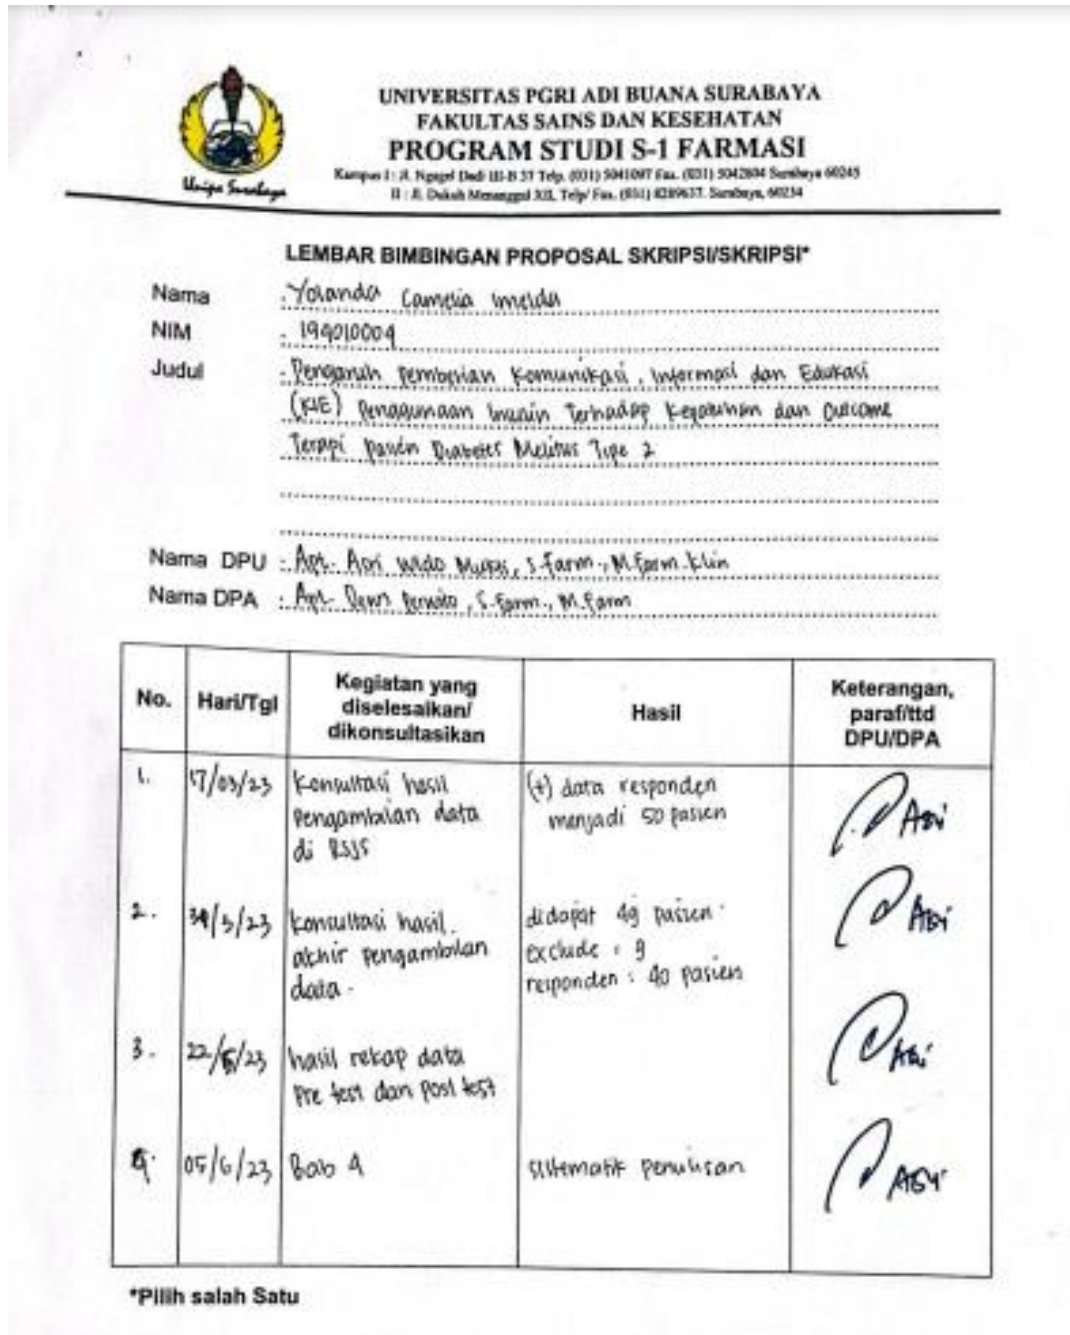 UNIVERSITAS PGRI ADI BUANA SURABAYA
FAKULTAS SAINS DAN KESEHATAN
PROGRAM STUDI S-1 FARMASI
Kampus I : Jl. Ngagel Dadi III-B 37 Telp. (031) 5041097 Fax. (031) 5042804 Surabaya 60245
II : Jl. Dukuh Menanggal XII, Telp/ Fax. (031) 8289637. Surabaya, 60234
Unipa Surabaya
LEMBAR BIMBINGAN PROPOSAL SKRIPSI/SKRIPSI*
Nama : Yolanda Camelia Imelda
NIM : 194010004
Judul : Pengaruh Pemberian Komunikasi, Informasi dan Edukasi
(KIE) Penggunaan Insulin Terhadap Kepatuhan dan Outcome
Terapi Pasien Diabetes Melitus Tipe 2
Nama DPU : Apt. Asri Wido Mukti, S.Farm., M.Farm.Klin
Nama DPA : Apt. Perwito, S.Farm., M.Farm
No. Hari/Tgl Kegiatan yang diselesaikan/ dikonsultasikan Hasil Keterangan, paraf/ttd DPU/DPA
1. 17/03/23 Konsultasi hasil (+) data responden
pengambilan data menjadi 50 pasien
di RSJS
2. /5/23 konsultasi hasil didapat 49 pasien
akhir pengambilan exclude : 9
data. responden : 40 pasien
3. 22/5/23 hasil rekap data
Pre test dan Post test
4. 05/6/23 Bab 4 sistematik penulisan
*Pilih salah Satu